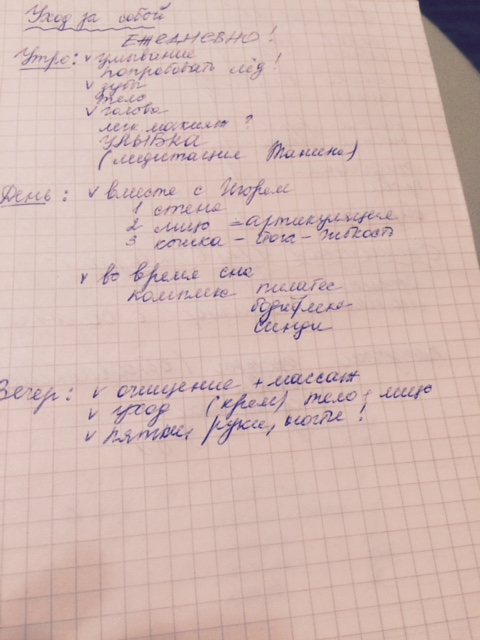 Уход за собой
ЕЖЕДНЕВНО!
Утро: v умывание
попробовать лёд!
v зубы
тело
v голова
легк макияж ?
УЛЫБКА
(медитация
День: v вместе с Игорем
1 стена
2 лицо = артикуляция
3 кошка - йога - гибкость
v во время сна
комплекс пилатес
бодифлекс
синди
Вечер: v очищение + массаж
v уход (крем) тело, лицо
v пятки, руки, ногти!